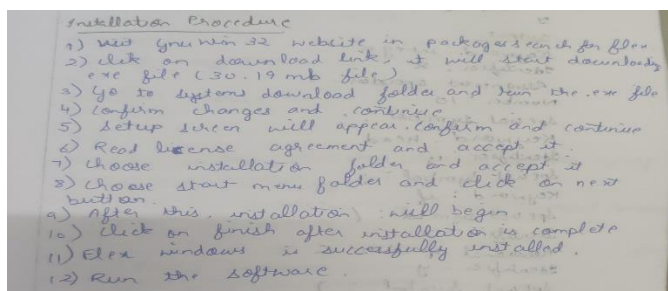 Installation Procedure
1) Visit Gnu Win 32 website in packages search for flex
2) click on download link, it will start downloading
exe file (30.19 mb file)
3) Go to systems download folder and run the .exe file
4) Confirm changes and continue
5) Setup screen will appear. Confirm and continue
6) Read license agreement and accept it.
7) Choose installation folder and accept it
8) Choose start menu folder and click on next
button.
9) After this, installation will begin
10) Click on finish after installation is complete
11) Flex windows is successfully installed.
12) Run the software.